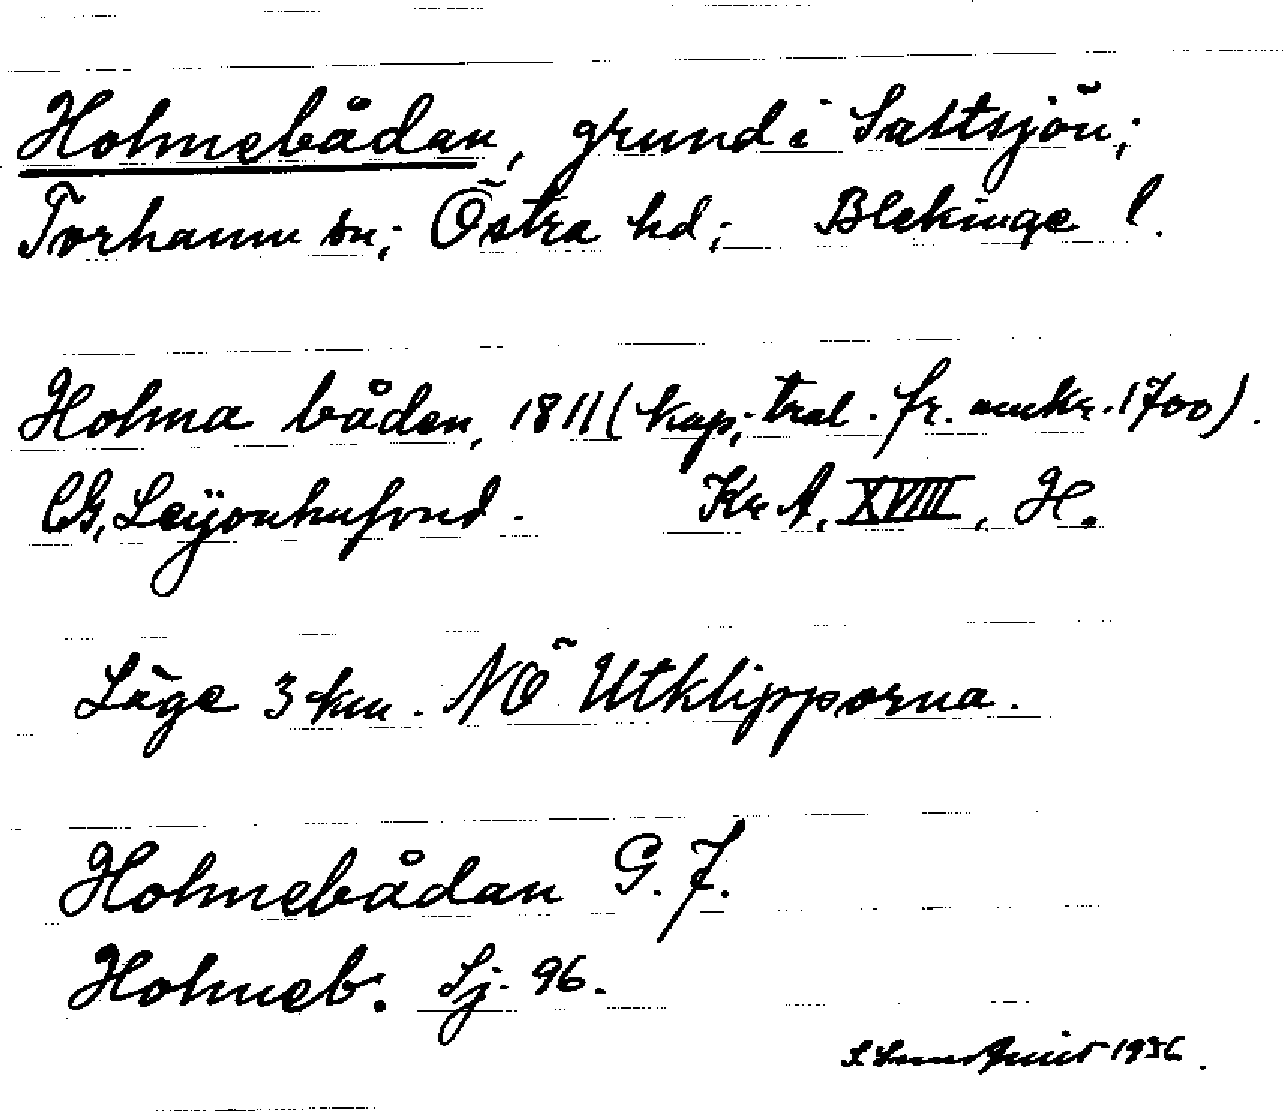 Holmebådan, grund i Saltsjön;
Torhamn sn; Östra hd; Blekinge l.
Holma båden, 1811 (kap; tral. fr. omkr. 1700).
CG, Leÿonhufvud. Kr A, XVIII, H.
Läge 3 km. NÖ Utklipporna.
Holmebådan G. F.
Holmeb. Sj. 96.
1936.